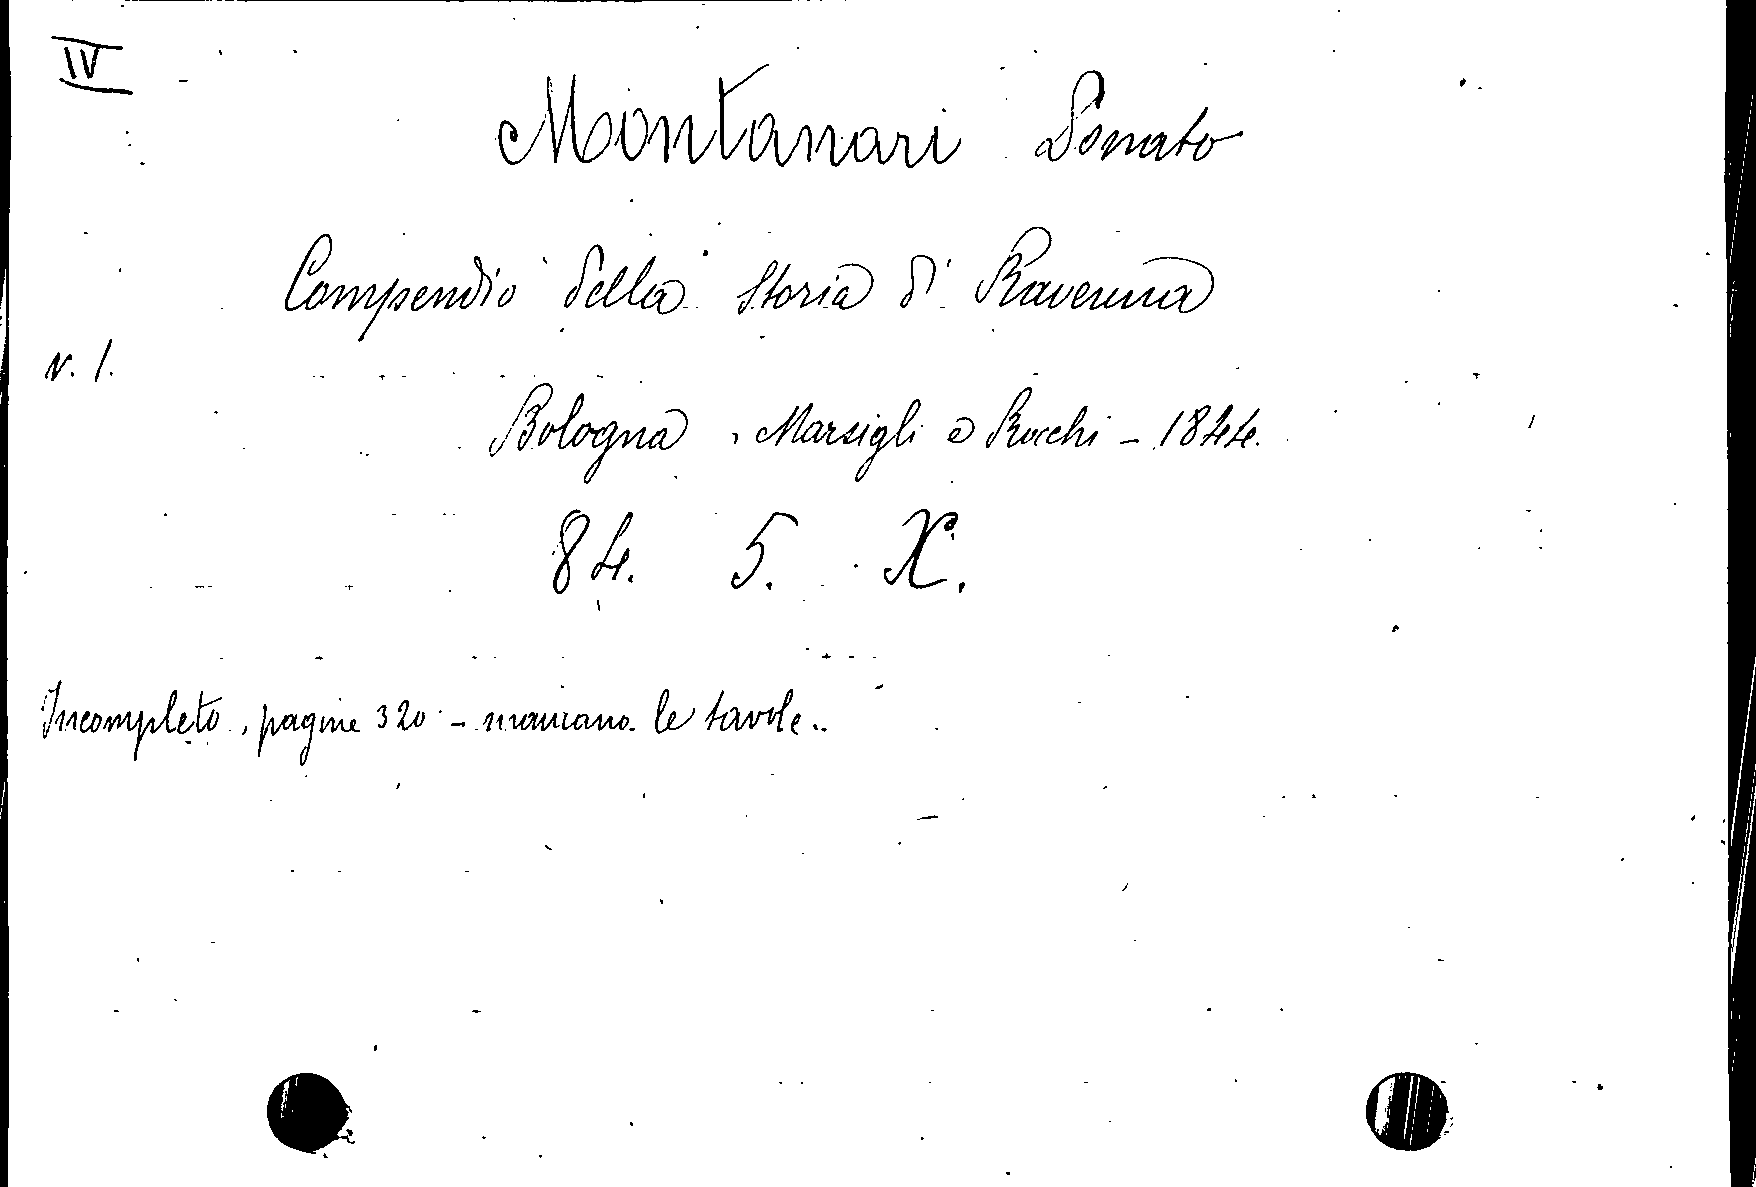 IV
Montanari Donato
Compendio della Storia di Ravenna
N. 1.
Bologna, Marsigli e Rocchi - 1844.
84. 5. X.
Incompleto, pagine 320 - mancano le tavole.